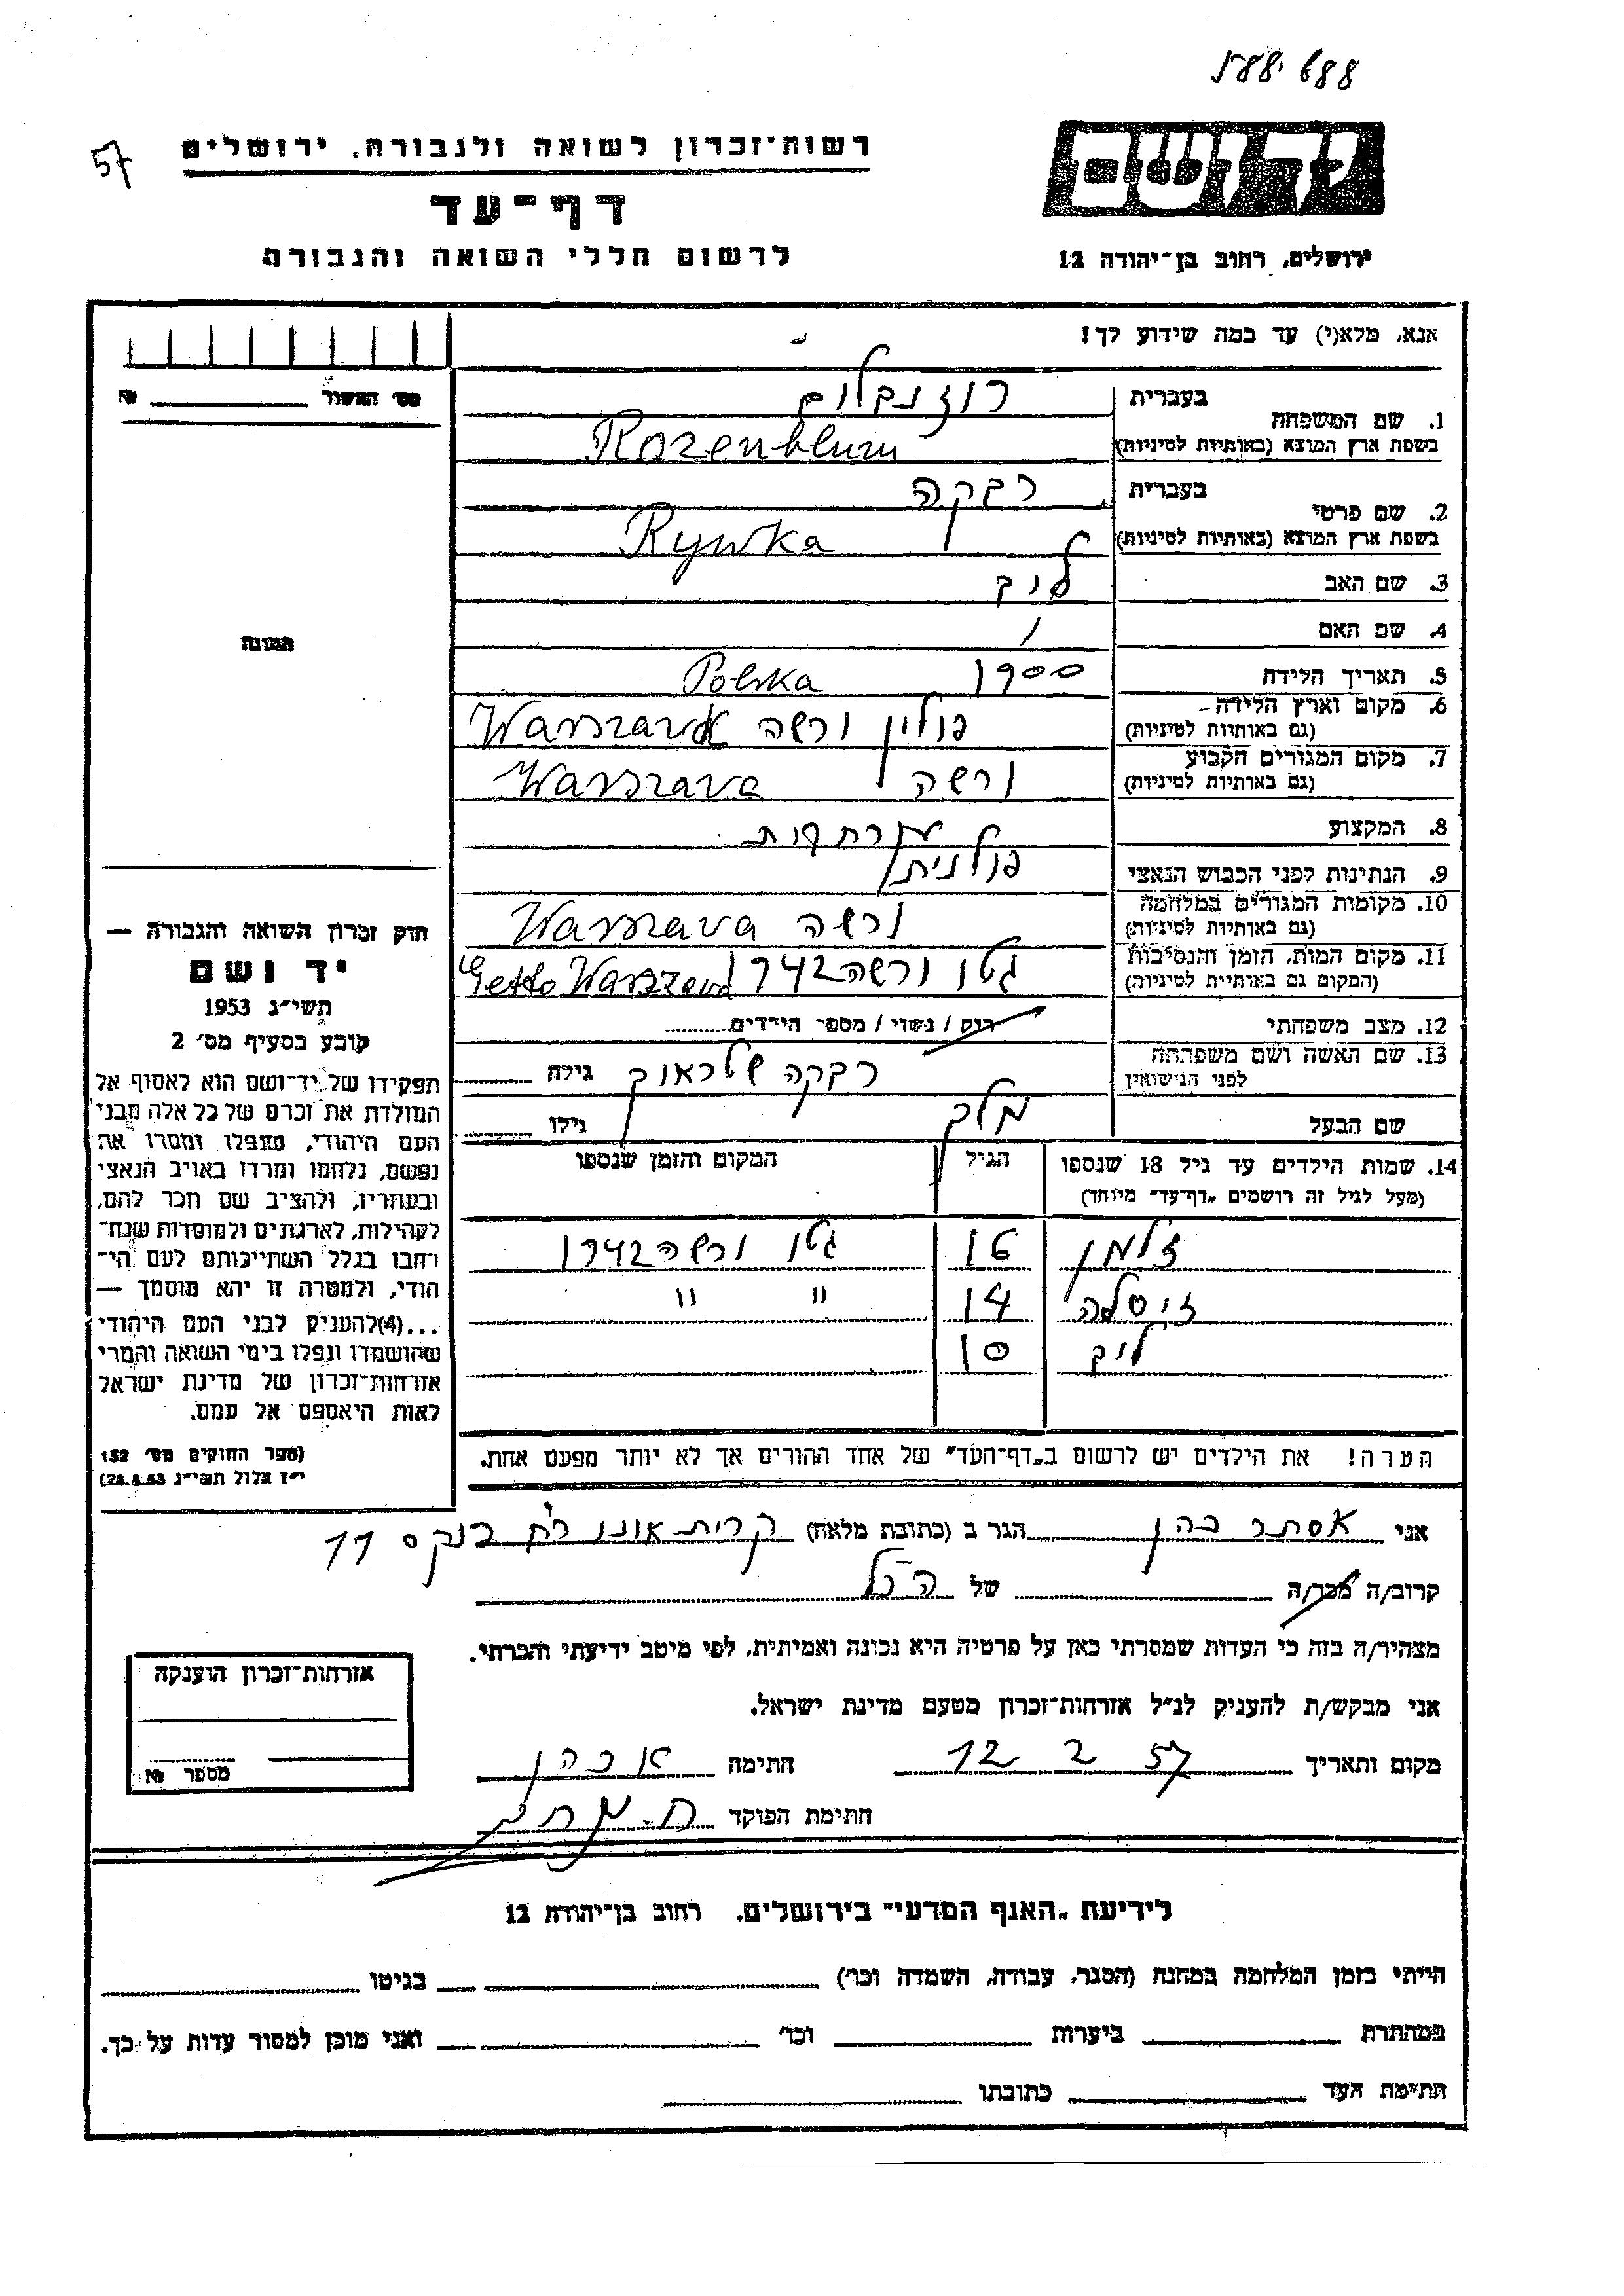 57
רשות־זכרון לשואה ולגבורה, ירושלים
דף־עד
לרשום חללי השואה והגבורה
יד ושם
ירושלים, רחוב בן־יהודה 12
אנא, מלא(י) עד כמה שידוע לך!
מס׳ האשור №
1. שם המשפחה
בעברית רוזנבלום
בשפת ארץ המוצא (באותיות לטיניות) Rozenblum
2. שם פרטי
בעברית רבקה
בשפת ארץ המוצא (באותיות לטיניות) Rywka
3. שם האב לייב
4. שם האם
5. תאריך הלידה 1900 Polska
6. מקום וארץ הלידה
(גם באותיות לטיניות) פולין ורשה Warszawa
7. מקום המגורים הקבוע
(גם באותיות לטיניות) ורשה Warszava
8. המקצוע
9. הנתינות לפני הכבוש הנאצי פולנית
10. מקומות המגורים במלחמה
(גם באותיות לטיניות) ורשה Warszava
11. מקום המות, הזמן והנסיבות
(המקום גם באותיות לטיניות) גטו ורשה 1942 Getto Warszava
12. מצב משפחתי רוק / נשוי / מספר הילדים
13. שם האשה ושם משפחתה
לפני הנישואין רבקה גילה
שם הבעל גילו
14. שמות הילדים עד גיל 18 שנספו הגיל המקום והזמן שנספו
(מעל לגיל זה רושמים „דף־עד״ מיוחד)
זלמן 16 גטו ורשה 1942
זיסלה 14 " "
לייב 10
הערה! את הילדים יש לרשום ב„דף־העד״ של אחד ההורים אך לא יותר מפעם אחת.
התמונה
חוק זכרון השואה והגבורה —
יד ושם
תשי״ג 1953
קובע בסעיף מס׳ 2
תפקידו של יד־ושם הוא לאסוף אל
המולדת את זכרם של כל אלה מבני
העם היהודי, שנפלו ומסרו את
נפשם, נלחמו ומרדו באויב הנאצי
ובעוזריו, ולהציב שם וזכר להם,
לקהילות, לארגונים ולמוסדות שנח־
רבו בגלל השתייכותם לעם הי־
הודי, ולמטרה זו יהא מוסמך —
...(4) להעניק לבני העם היהודי
שהושמדו ונפלו בימי השואה והמרי
אזרחות־זכרון של מדינת ישראל
לאות היאספם אל עמם.
(ספר החוקים מס׳ 132
י״ז אלול תשי״ג 28.8.53)
אני אסתר כהן הגר ב (כתובת מלאה) קרית אונו 11
קרוב/ה מכר/ה של הנ״ל
מצהיר/ה בזה כי העדות שמסרתי כאן על פרטיה היא נכונה ואמיתית, לפי מיטב ידיעתי והכרתי.
אני מבקש/ת להעניק לנ״ל אזרחות־זכרון מטעם מדינת ישראל.
מקום ותאריך 12 2 57 חתימה א כהן
חתימת הפוקד
אזרחות־זכרון הוענקה
מספר №
לידיעת „האגף המדעי״ בירושלים. רחוב בן־יהודה 12
הייתי בזמן המלחמה במחנה (הסגר, עבודה, השמדה וכו׳) בגיטו
במחתרת ביערות וכו׳ ואני מוכן למסור עדות על כך.
חתימת העד כתובתו